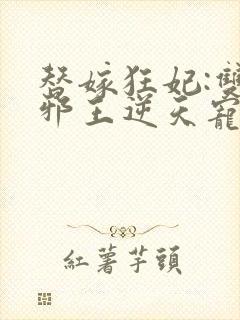 替嫁狂妃:雙
邪王逆天寵
紅薯芋頭